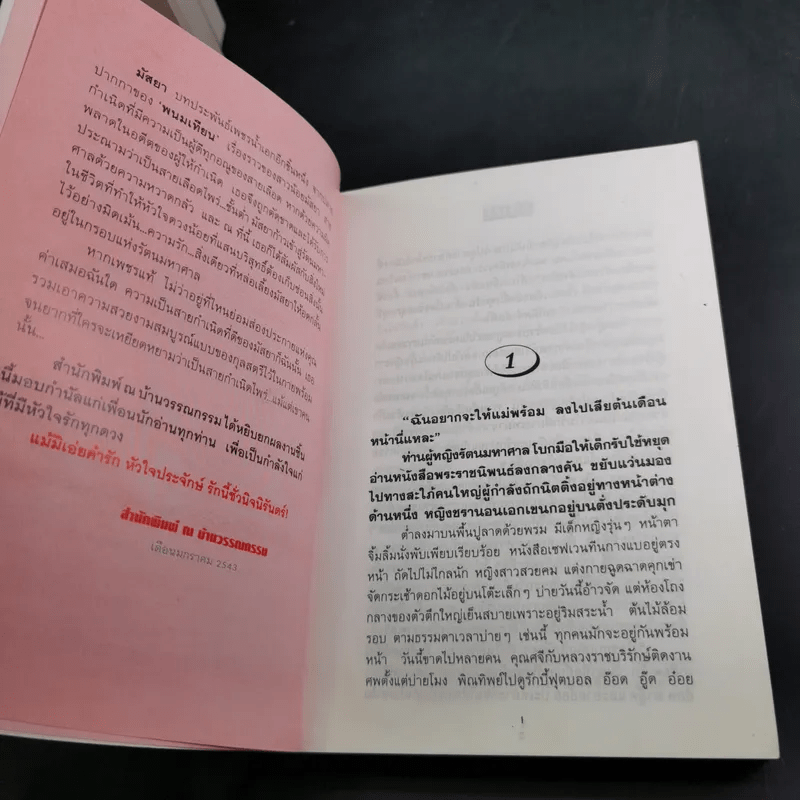 มัสยา บทประพันธ์เพชรน้ำเอกอีกชิ้นหนึ่ง จาก
ปากกาของ 'พนมเทียน' เรื่องราวของสาวน้อยมัสยา
กำเนิดที่มีความเป็นผู้ดีทุกอณูของสายเลือด หากด้วยความผิด
พลาดในอดีตของผู้ให้กำเนิด เธอจึงถูกตัดขาดและได้รับการ
ประณามว่าเป็นสายเลือดไพร่...ชั้นต่ำ มัสยาก้าวเข้าสู่รัตนมหา-
ศาลด้วยความหวาดกลัว และ ณ ที่นี้ เธอก็ได้สัมผัสกับสิ่งใหม่
ในชีวิตที่ทำให้หัวใจดวงน้อยที่แสนบริสุทธิ์ต้องเก็บซ่อนสิ่งนั้น
ไว้อย่างมิดเม้น...ความรัก...สิ่งเดียวที่หล่อเลี้ยงมัสยาให้อดกลั้น
อยู่ในกรอบแห่งรัตนมหาศาล
หากเพชรแท้ ไม่ว่าอยู่ที่ไหนย่อมส่องประกายแห่งคุณ
ค่าเสมอฉันใด ความเป็นสายกำเนิดที่ดีของมัสยาก็ฉันนั้น เธอ
รวมเอาความสวยงามสมบูรณ์แบบของกุลสตรีไว้ในกายพร้อม
จนยากที่ใครจะเหยียดหยามว่าเป็นสายกำเนิดไพร่...แม้แต่เขาคน
นั้น...
สำนักพิมพ์ ณ บ้านวรรณกรรม ได้หยิบยกผลงานชิ้น
นี้มอบกำนัลแก่เพื่อนนักอ่านทุกท่าน เพื่อเป็นกำลังใจแก่
ผู้ที่มีหัวใจรักทุกดวง
แม้มิเอ่ยคำรัก หัวใจประจักษ์ รักนี้ชั่วนิจนิรันดร์!
สำนักพิมพ์ ณ บ้านวรรณกรรม
เดือนมกราคม 2543
1
“ฉันอยากจะให้แม่พร้อม ลงไปเสียต้นเดือน
หน้านี่แหละ”
ท่านผู้หญิงรัตนมหาศาล โบกมือให้เด็กรับใช้หยุด
อ่านหนังสือพระราชนิพนธ์ลงกลางคัน ขยับแว่นมอง
ไปทางสะใภ้คนใหญ่ผู้กำลังถักนิตติ้งอยู่ทางหน้าต่าง
ด้านหนึ่ง หญิงชรานอนเอกเขนกอยู่บนตั่งประดับมุก
ต่ำลงมาบนพื้นปูลาดด้วยพรม มีเด็กหญิงรุ่นๆ หน้าตา
จิ้มลิ้มนั่งพับเพียบเรียบร้อย หนังสือเชฟเวนทีนกางแบอยู่ตรง
หน้า ถัดไปไม่ไกลนัก หญิงสาวสวยคม แต่งกายฉูดฉาดคุกเข่า
จัดกระเช้าดอกไม้อยู่บนโต๊ะเล็กๆ บ่ายวันนี้อ้าวจัด แต่ห้องโถง
กลางของตัวตึกใหญ่เย็นสบายเพราะอยู่ริมสระน้ำ ต้นไม้ล้อม
รอบ ตามธรรมดาเวลาบ่ายๆ เช่นนี้ ทุกคนมักจะอยู่กันพร้อม
หน้า วันนี้ขาดไปหลายคน คุณศจีกับหลวงราชบริรักษ์ติดงาน
ศพตั้งแต่บ่ายโมง พิณทิพย์ไปดูรักบี้ฟุตบอล อ๊อด อู๊ด อ๋อย
1